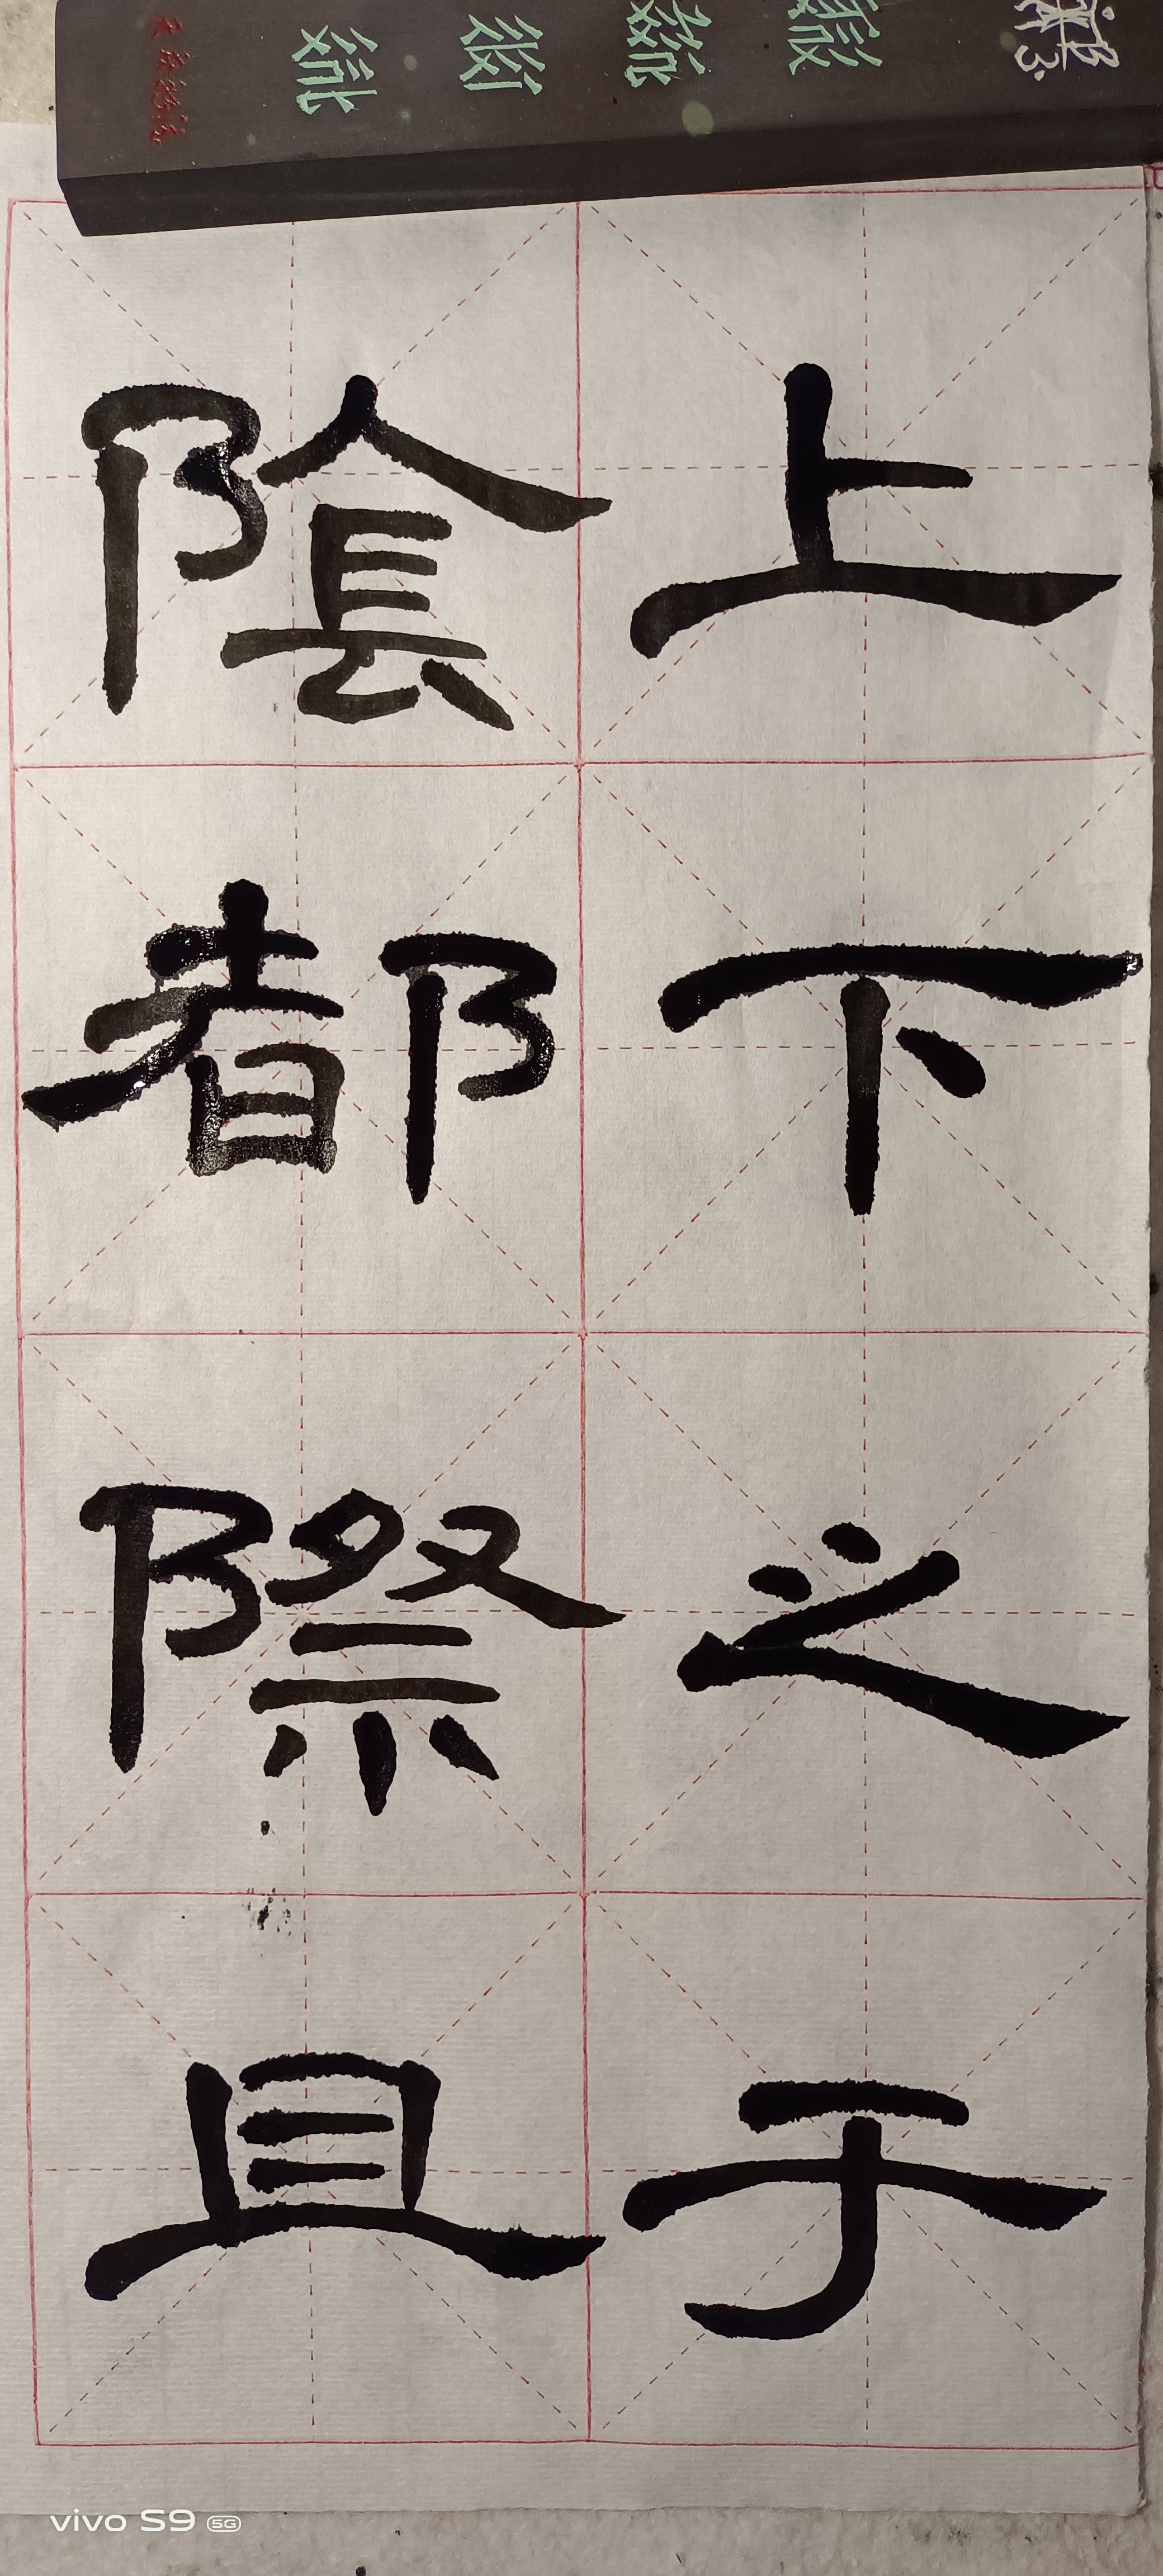 上下之于
陰都際且
vivo S9 5G